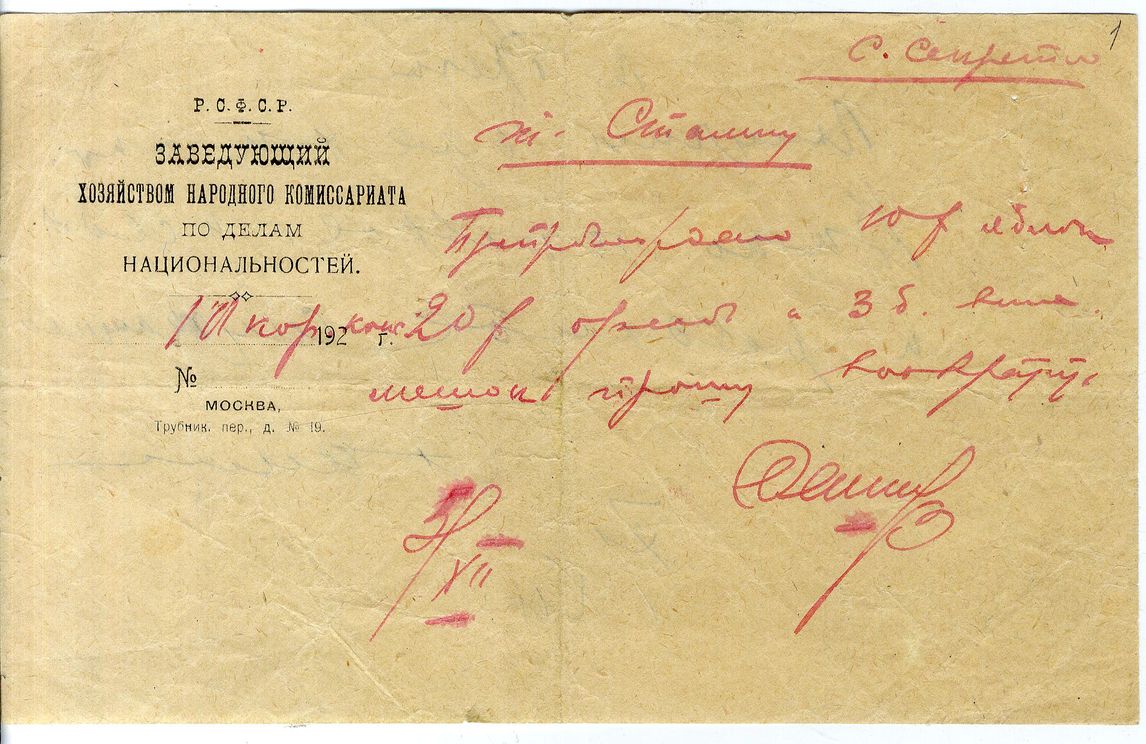 1
С. Секретно
Р. С. Ф. С. Р.
ЗАВЕДУЮЩИЙ
ХОЗЯЙСТВОМ НАРОДНОГО КОМИССАРИАТА
ПО ДЕЛАМ
НАЦИОНАЛЬНОСТЕЙ.
192 г.
№
МОСКВА,
Трубник. пер., д. № 19.
т. Сталину
Препровождаю 10 f яблок
1 кор. конф. 20 f орехов и 3 б. вина.
мешок прошу возвратить
XII